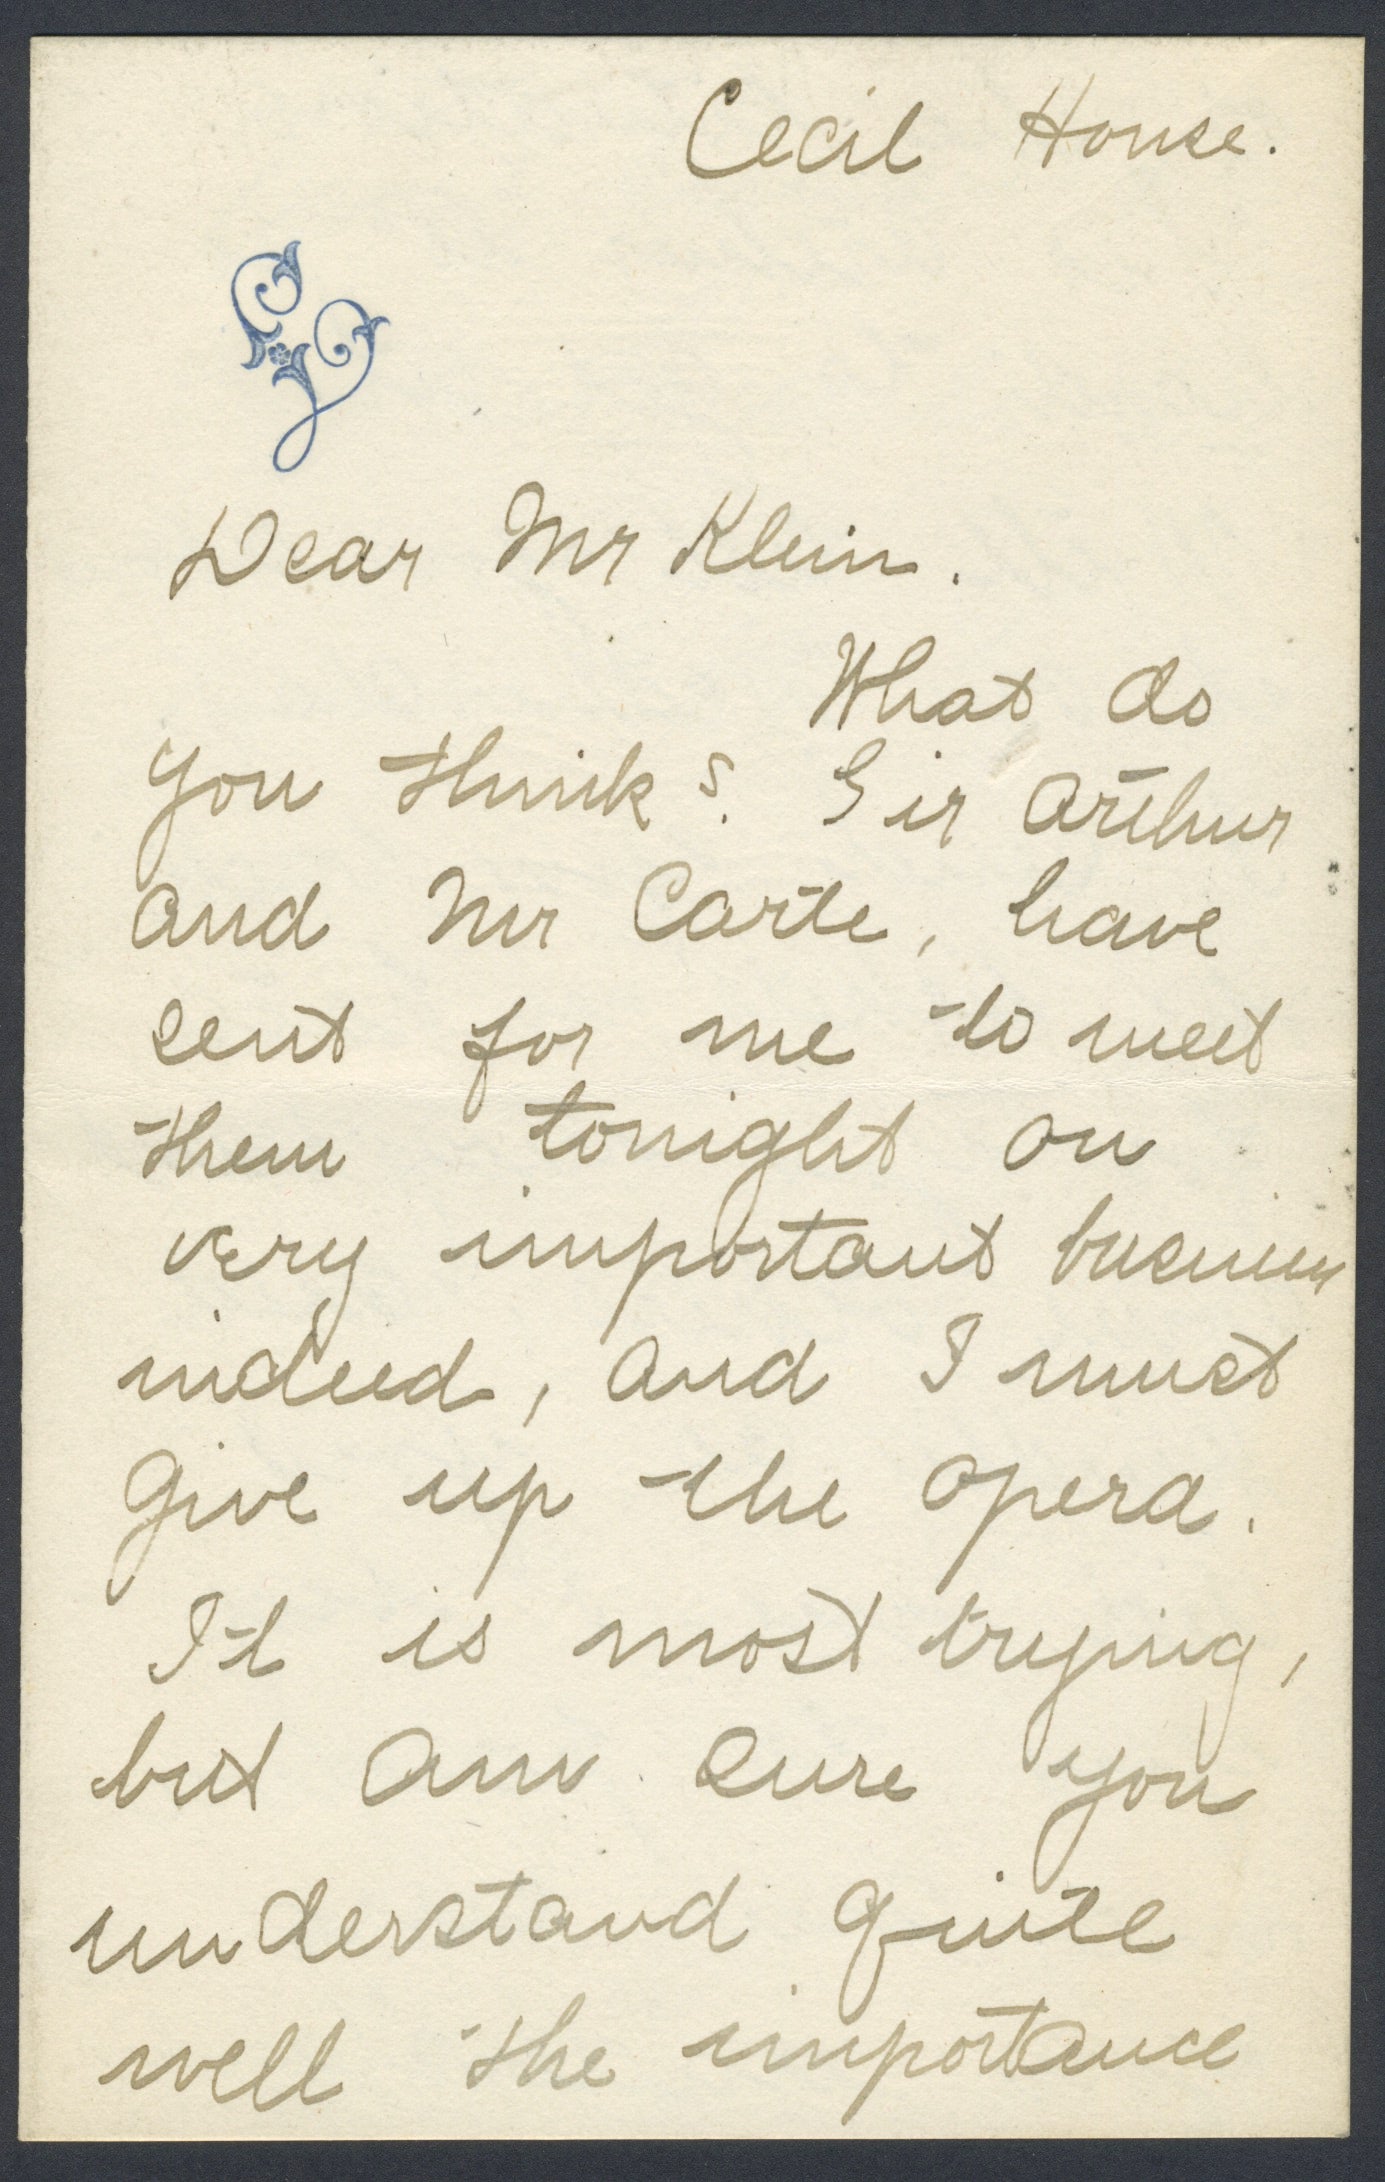 Cecil House.
Dear Mr Klein.
What do
you think? Sir Arthur
and Mr Carte, have
sent for me to meet
them tonight on
very important business
indeed, and I must
give up the opera.
It is most trying,
but am sure you
understand quite
well the importance